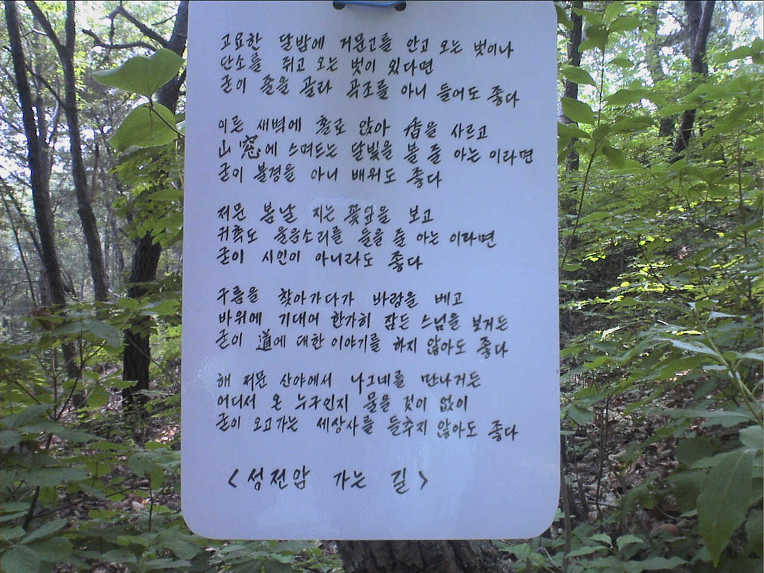 고요한 달밤에 거문고를 안고 오는 벗이나
단소를 쥐고 오는 벗이 있다면
굳이 줄을 골라 곡조를 아니 들어도 좋다
이른 새벽에 홀로 앉아 香을 사르고
山窓에 스며드는 달빛을 볼 줄 아는 이라면
굳이 불경을 아니 배워도 좋다
저문 봄날 지는 꽃잎을 보고
귀촉도 울음소리를 들을 줄 아는 이라면
굳이 시인이 아니라도 좋다
구름을 찾아가다가 바랑을 베고
바위에 기대어 한가히 잠든 스님을 보거든
굳이 道에 대한 이야기를 하지 않아도 좋다
해 저문 산야에서 나그네를 만나거든
어디서 온 누구인지 물을 것이 없이
굳이 오고가는 세상사를 들추지 않아도 좋다
<성전암 가는 길>